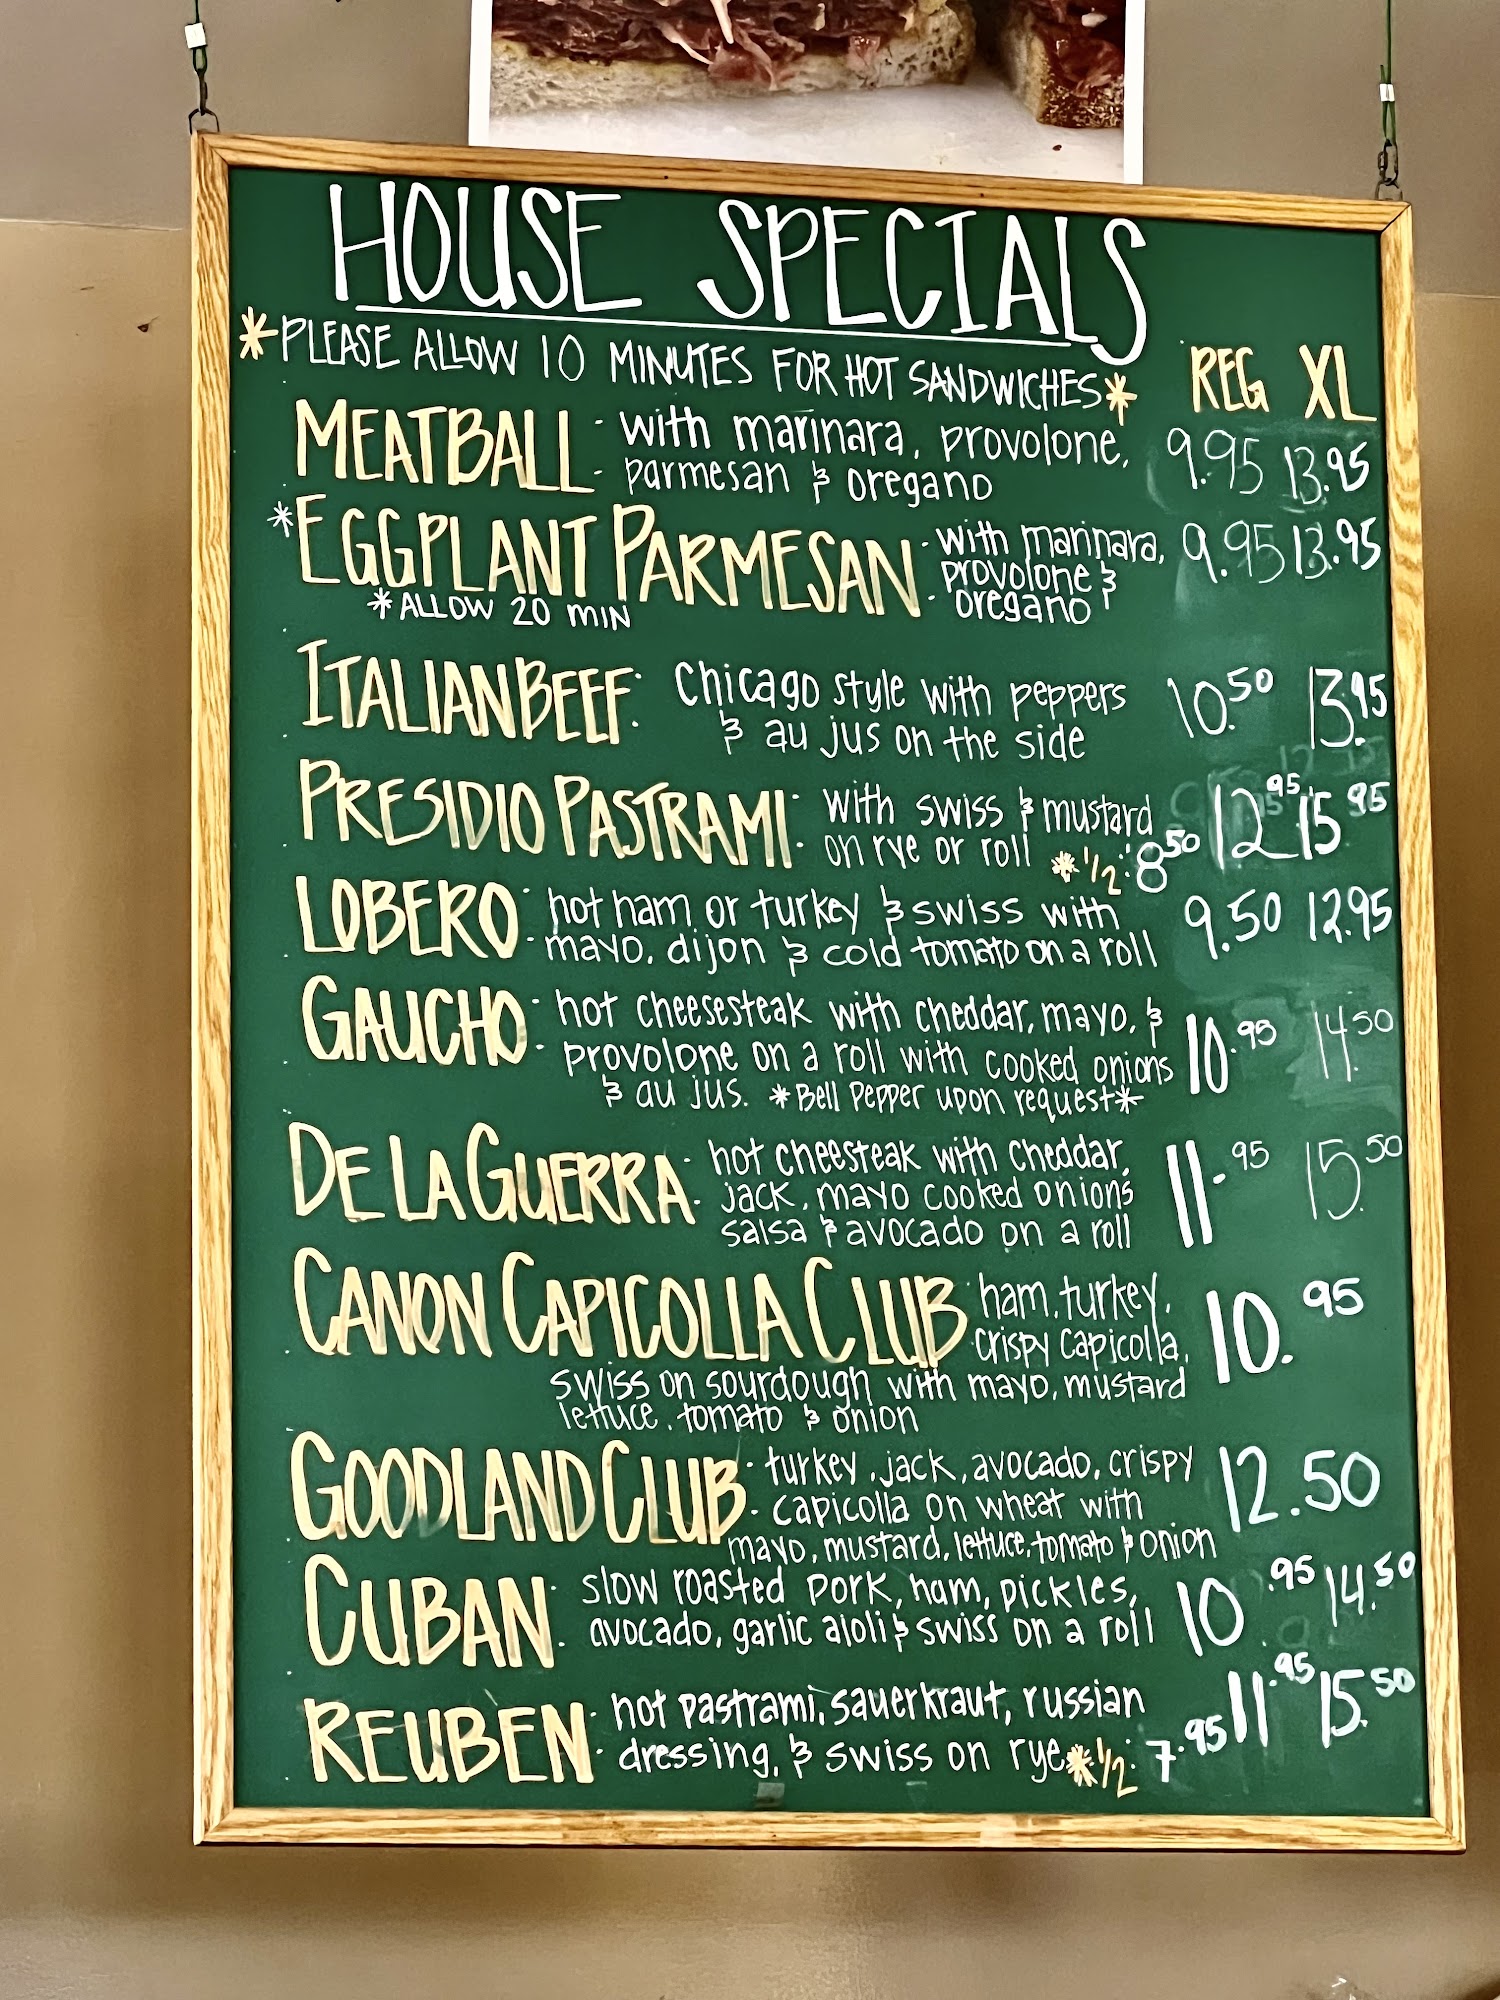 HOUSE SPECIALS
*PLEASE ALLOW 10 MINUTES FOR HOT SANDWICHES* REG XL
MEATBALL: with marinara, provolone, 9.95 13.95
parmesan & oregano
*EGGPLANT PARMESAN: with marinara, 9.95 13.95
provolone &
*ALLOW 20 MIN oregano
ITALIAN BEEF: Chicago style with peppers 10.50 13.95
& au jus on the side
PRESIDIO PASTRAMI: with swiss & mustard 12.95 15.95
on rye or roll *1/2: 8.50
LOBERO: hot ham or turkey & swiss with 9.50 12.95
mayo, dijon & cold tomato on a roll
GAUCHO: hot cheesesteak with cheddar, mayo, & 10.95 14.50
provolone on a roll with cooked onions
& au jus. *Bell Pepper upon request*
DE LA GUERRA: hot cheesteak with cheddar, 11.95 15.50
jack, mayo cooked onions
salsa & avocado on a roll
CANON CAPICOLLA CLUB: ham, turkey, 10.95
crispy capicolla,
swiss on sourdough with mayo, mustard
lettuce, tomato & onion
GOODLAND CLUB: turkey, jack, avocado, crispy 12.50
capicolla on wheat with
mayo, mustard, lettuce, tomato & onion
CUBAN: slow roasted pork, ham, pickles, 10.95 14.50
avocado, garlic aioli & swiss on a roll
REUBEN: hot pastrami, sauerkraut, russian 11.95 15.50
dressing, & swiss on rye *1/2: 7.95